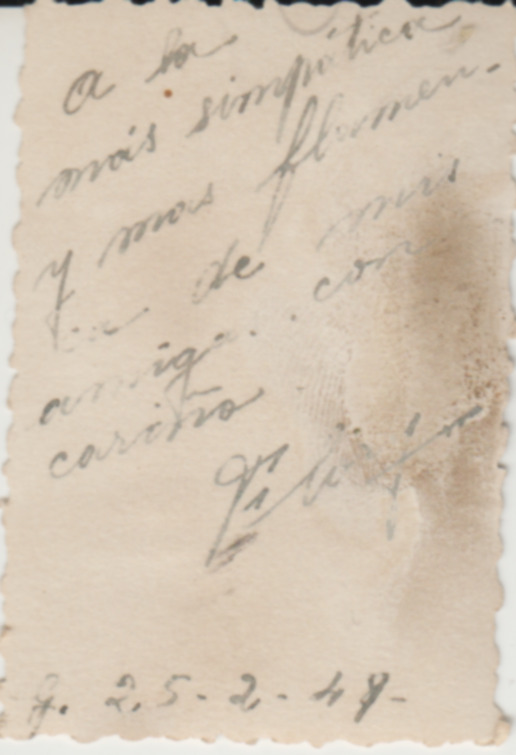 a la
más simpática
y mas flamen-
ca de mis
amiga.. con
cariño
G. 25-2-48-